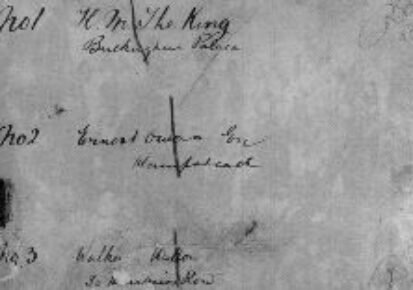 No1 H. M. The King
Buckingham Palace
No2 Ernest Owen Esq
Hampstead
No. 3 Walter
Row